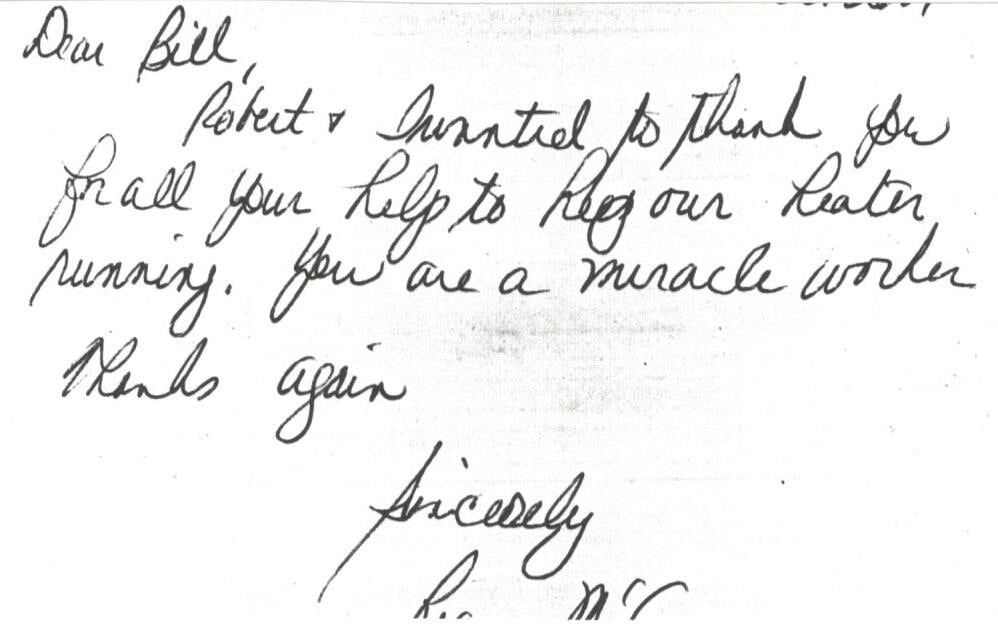 Dear Bill,
Robert & I wannted to thank you
for all your help to keep our heater
running. You are a miracle worker
Thanks again
Sincerely